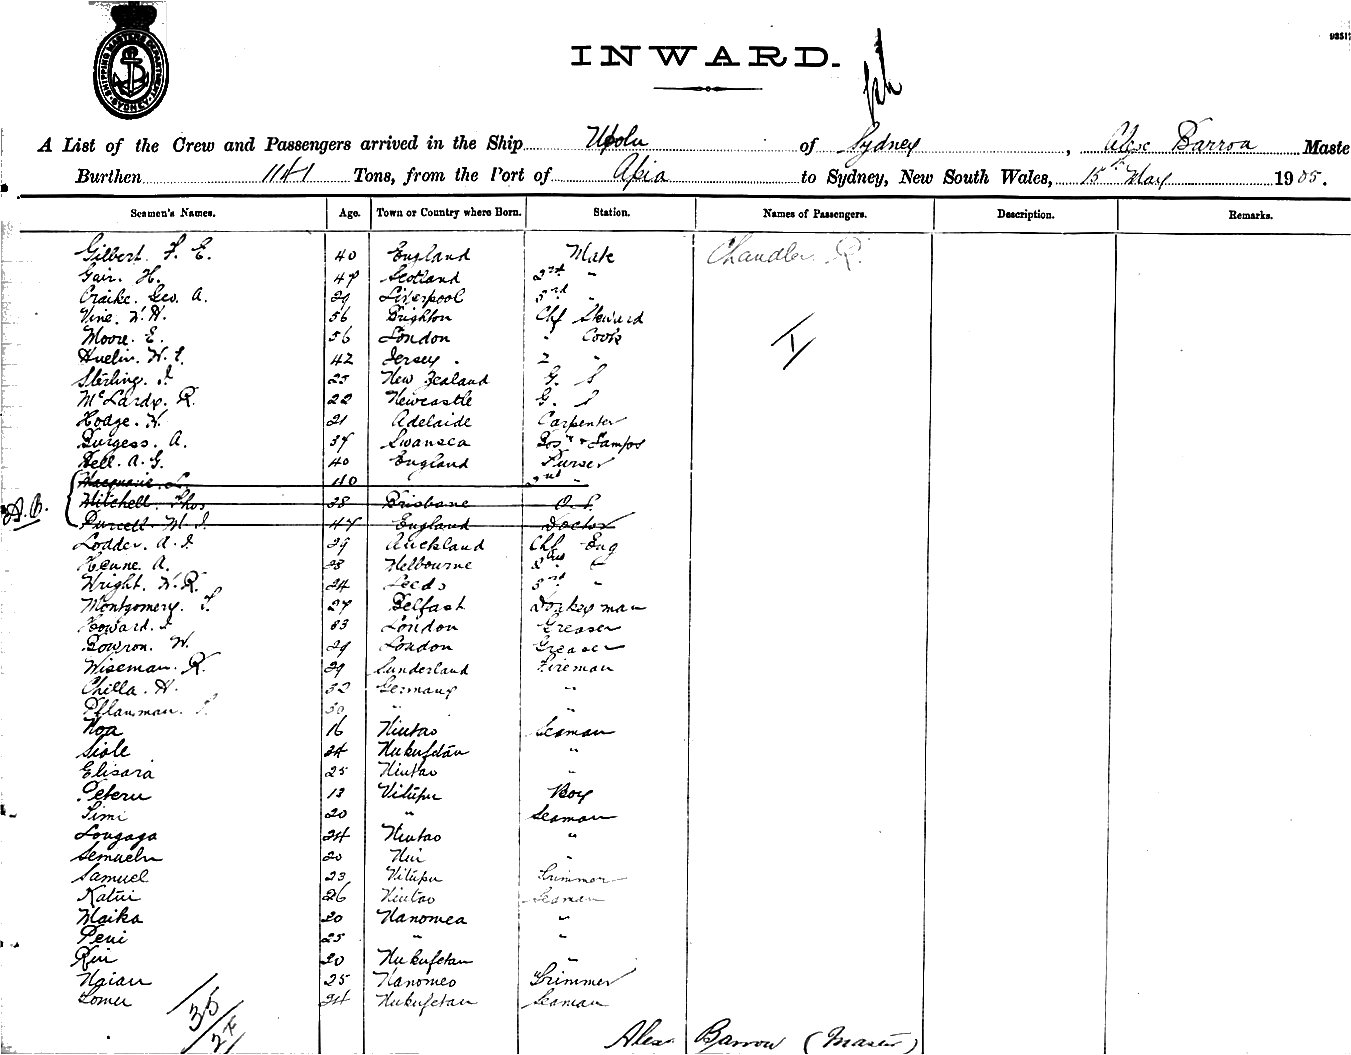 SHIPPING MASTERS DEPARTMENT SYDNEY
INWARD.
A List of the Crew and Passengers arrived in the Ship Upolu of Sydney, Alex Barron Maste
Burthen 1141 Tons, from the Port of Apia to Sydney, New South Wales, 15th May 1905.
Seamen's Names. Age. Town or Country where Born. Station. Names of Passengers. Description. Remarks.
Gilbert. F. E. 40 England Mate Chandler R.
Gair. H. 47 Scotland 2nd "
Craike. Geo. A. 29 Liverpool 3rd "
Vine. W. H. 56 Brighton Chf Steward
Moore. E. 56 London " Cook
Huelin. W. 42 Jersey. 2 "
Sterling. J. 25 New Zealand G. S
McLardy. R. 22 Newcastle G. S
Hodge. H. 21 Adelaide Carpenter
Burgess. A. 37 Swansea Bosn & Lamps
Bell. A. G. 40 England Purser
Macquarie. 40 2nd "
A.B. Mitchell. Thos 28 Brisbane O.S.
Purcell. M. J. 47 England Doctor
Lodder. A. J. 29 Auckland Chf Eng
Henne. A. 28 Melbourne 2nd "
Wright. W. R. 24 Leeds 3rd "
Montgomery. J. 27 Belfast Donkeyman
Howard. J. 33 London Greaser
Bowron. W. 29 London Greaser
Wiseman. R. 29 Sunderland Fireman
Chilla. H. 32 Germany "
Pflauman. 30 " "
Noa 16 Niutao Seaman
Siole 24 Nukufetau "
Elisara 25 Niutao "
Peteru 13 Vitupu Boy
Timi 20 " Seaman
Lougaga 24 Niutao "
Semuelu 20 Nui "
Samuel 23 Vitupu Trimmer
Katui 26 Niutao Seaman
Maika 20 Nanomea "
Peni 25 " "
Riu 20 Nukufetau "
Naiau 25 Nanomeo Trimmer
Lomu 24 Nukufetau Seaman
35
Alex Barron (Master)